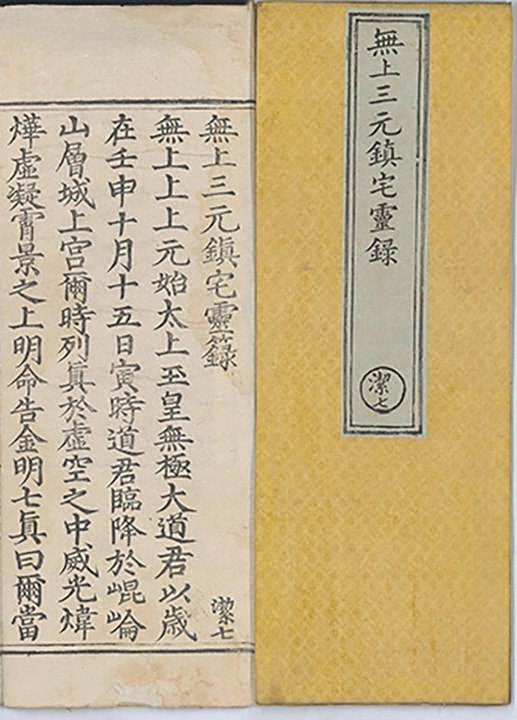 無上三元鎮宅靈錄
潔七
無上三元鎮宅靈籙
潔七
無上上上元始太上至皇無極大道君以歲
在壬申十月十五日寅時道君臨降於崐崘
山層城上宮爾時列眞於虛空之中威光煒
燁虛凝霄景之上明命告金明七眞曰爾當